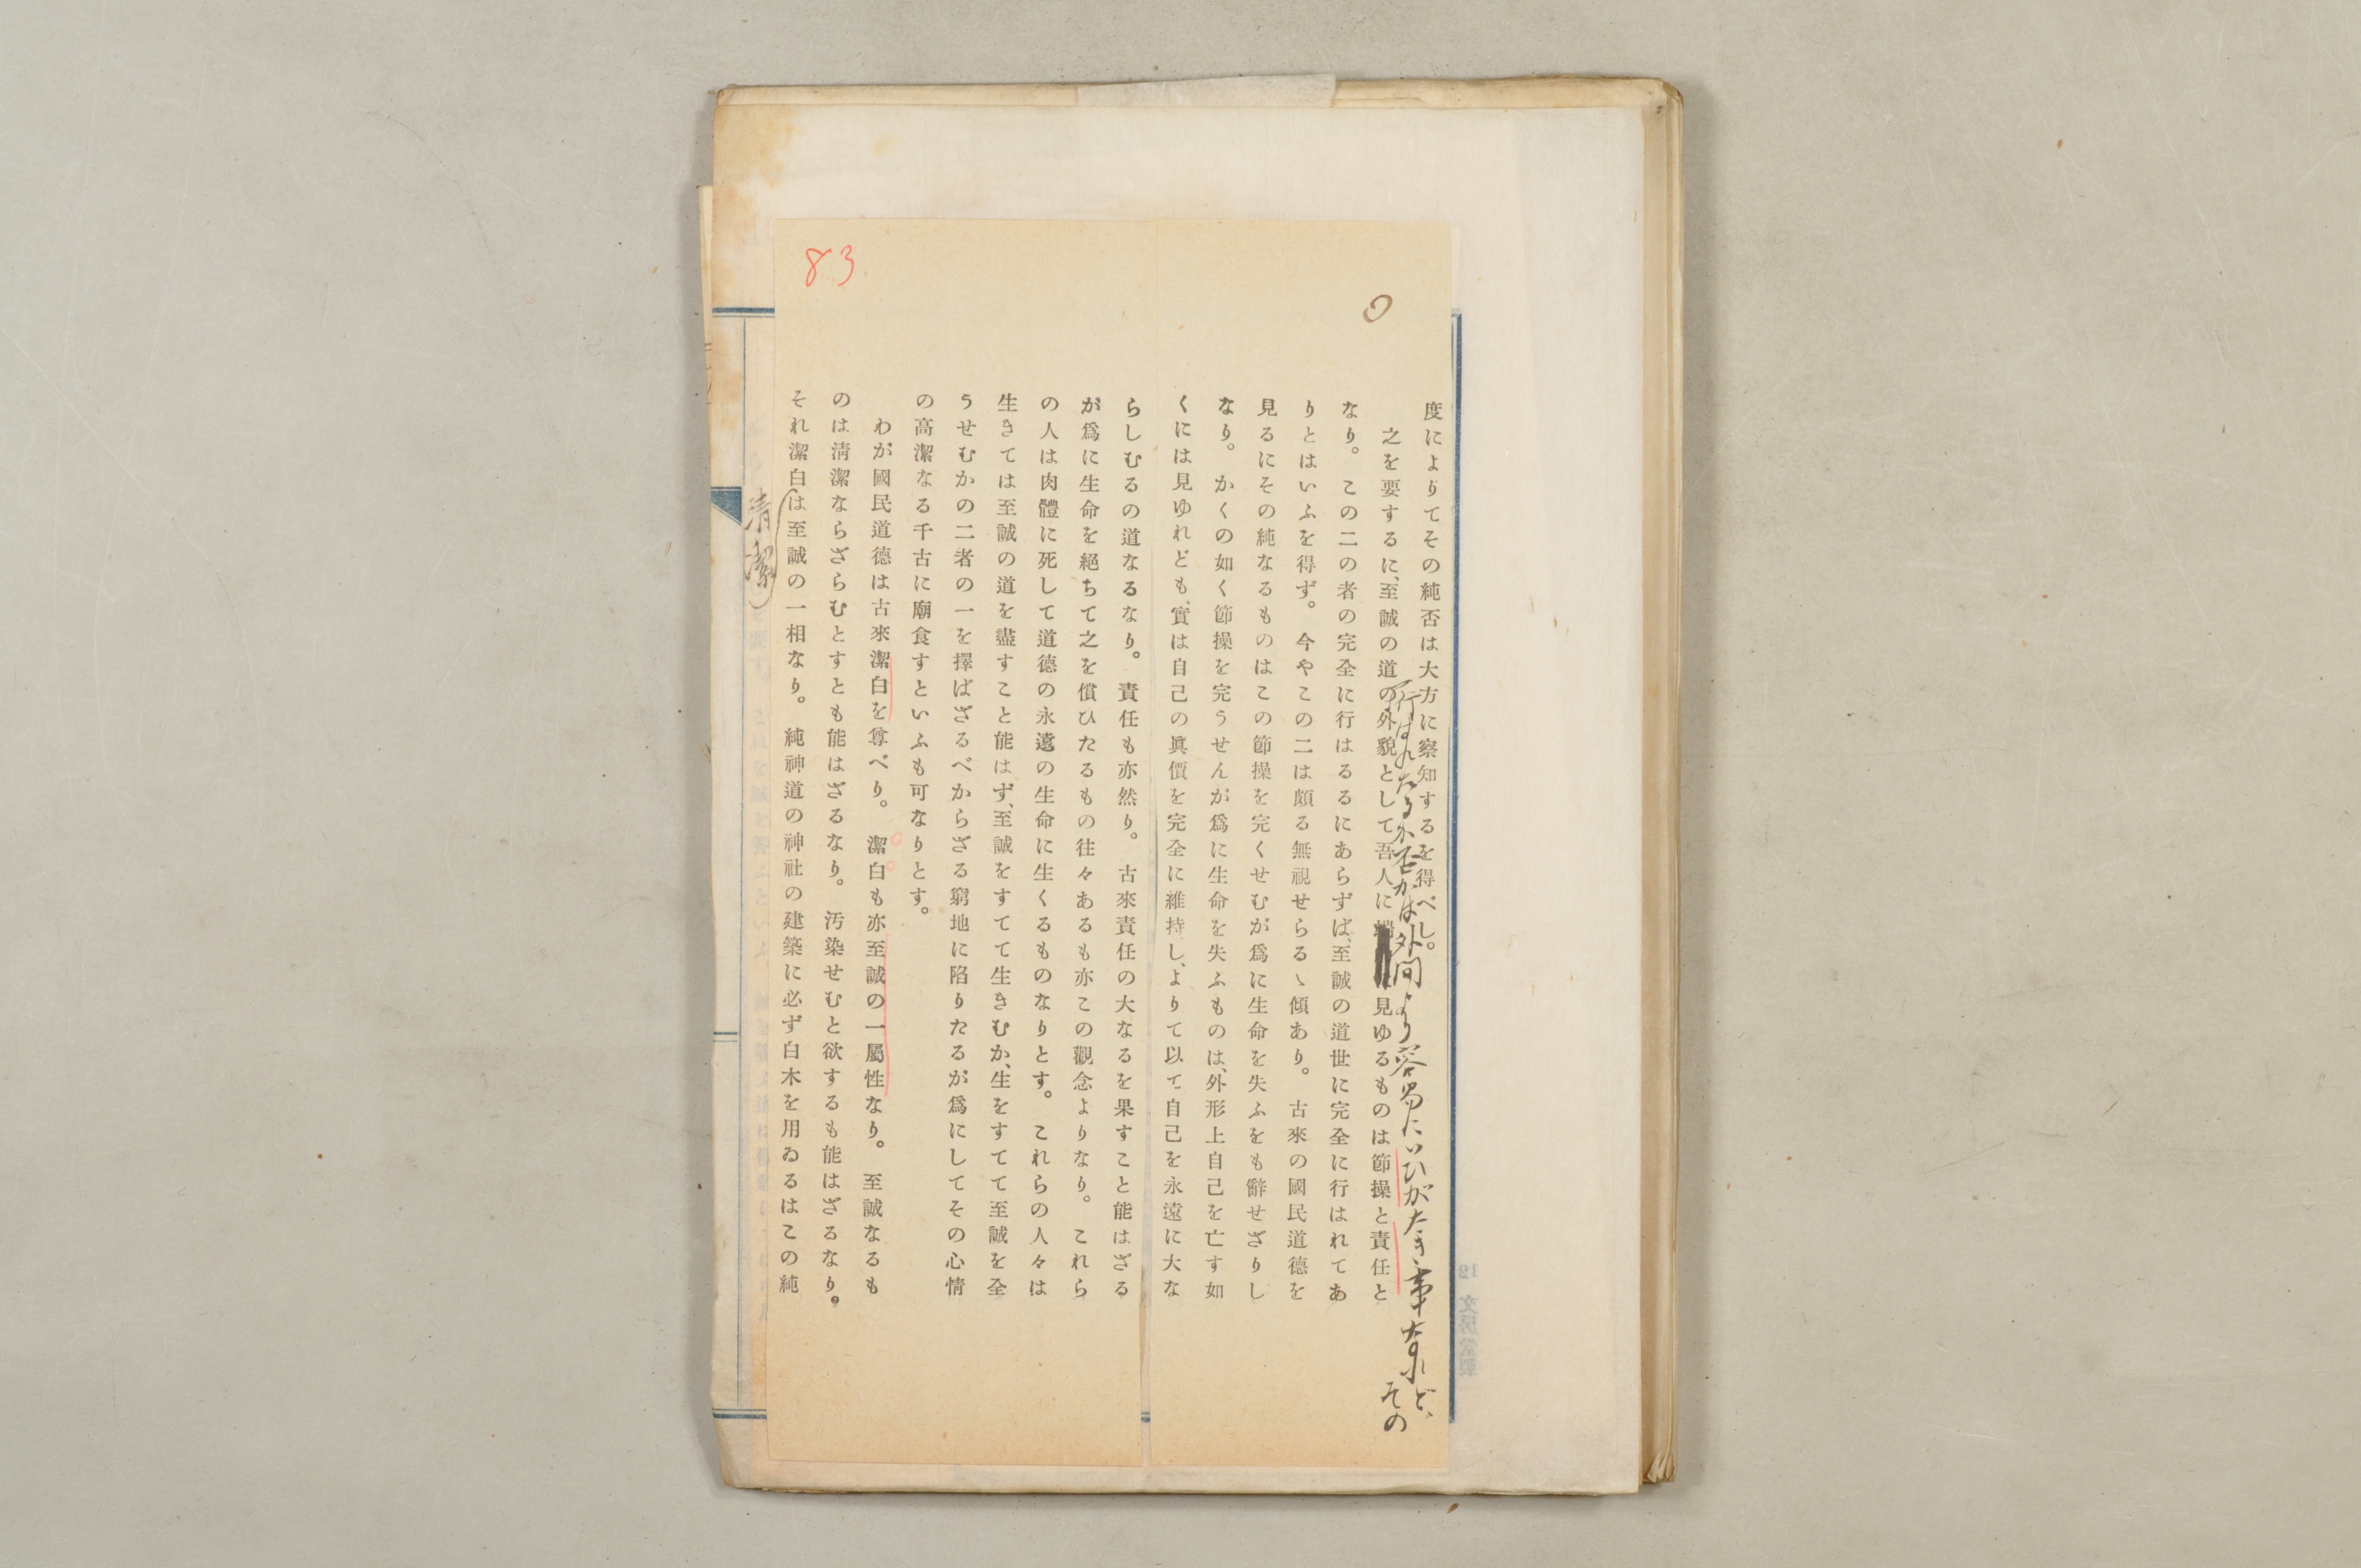 83
度によりてその純否は大方に察知するを得べし。
行はれたるか否かは外間より容易にいひがたき事なれど、その
之を要するに、至誠の道の外貌として吾人に見ゆるものは節操と責任と
なり。この二の者の完全に行はるるにあらずば、至誠の道世に完全に行はれてあ
りとはいふを得ず。今やこの二は頗る無視せらるゝ傾あり。古來の國民道德を
見るにその純なるものはこの節操を完くせむが爲に生命を失ふをも辭せざりし
なり。かくの如く節操を完うせんが爲に生命を失ふものは、外形上自己を亡す如
くには見ゆれども、實は自己の眞價を完全に維持し、よりて以て自己を永遠に大な
らしむるの道なるなり。責任も亦然り。古來責任の大なるを果すこと能はざる
が爲に生命を絕ちて之を償ひたるもの往々あるも亦この觀念よりなり。これら
の人は肉體に死して道德の永遠の生命に生くるものなりとす。これらの人々は
生きては至誠の道を盡すこと能はず、至誠をすてて生きむか、生をすてて至誠を全
うせむかの二者の一を擇ばざるべからざる窮地に陷りたるが爲にしてその心情
の高潔なる千古に廟食すといふも可なりとす。
わが國民道德は古來潔白を尊べり。潔白も亦至誠の一屬性なり。至誠なるも
のは淸潔ならざらむとすとも能はざるなり。汚染せむと欲するも能はざるなり。
それ潔白は至誠の一相なり。純神道の神社の建築に必ず白木を用ゐるはこの純
清潔
12 文房堂製